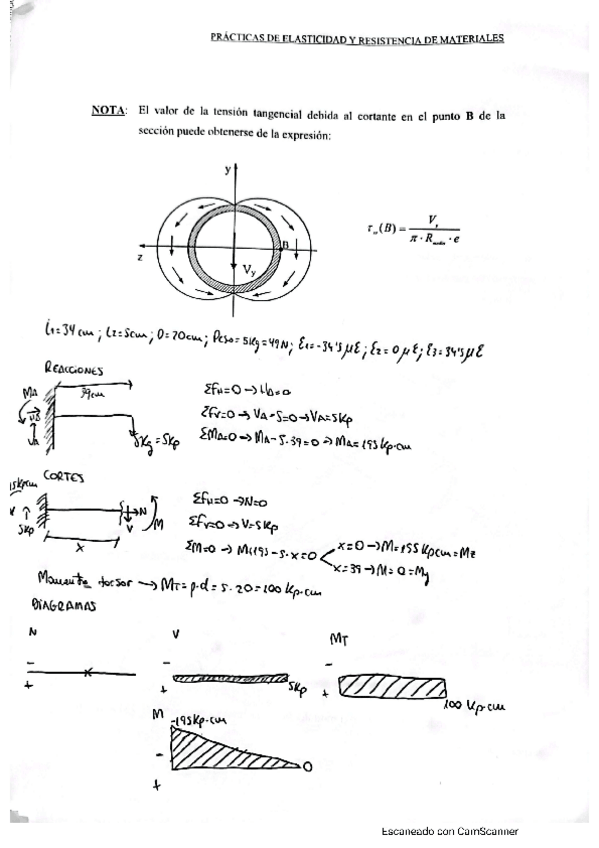 PRÁCTICAS DE ELASTICIDAD Y RESISTENCIA DE MATERIALES
NOTA: El valor de la tensión tangencial debida al cortante en el punto B de la
sección puede obtenerse de la expresión:
y
z
B
Vy
l1=34cm; l2=5cm; D=20cm; Peso=5Kg=49N; ε1=-34'5με; ε2=0με; ε3=34'5με
REACCIONES
39cm
MA
VA
5Kg=5Kp
ΣFV=0→VA-5=0→VA=5Kp
ΣMA=0→MA-5·39=0→MA=195Kp·cm
CORTES
5Kp
x
N
V
M
ΣFH=0→N=0
ΣFV=0→V=5Kp
x=0→M=195Kpcm=Mz
x=39→M=0=My
Momento torsor→MT=p·d=5·20=100Kp·cm
DIAGRAMAS
N
V
MT
-
+
-
+
5Kp
-
+
100Kp·cm
M
-195Kp·cm
-
+
0
Escaneado con CamScanner